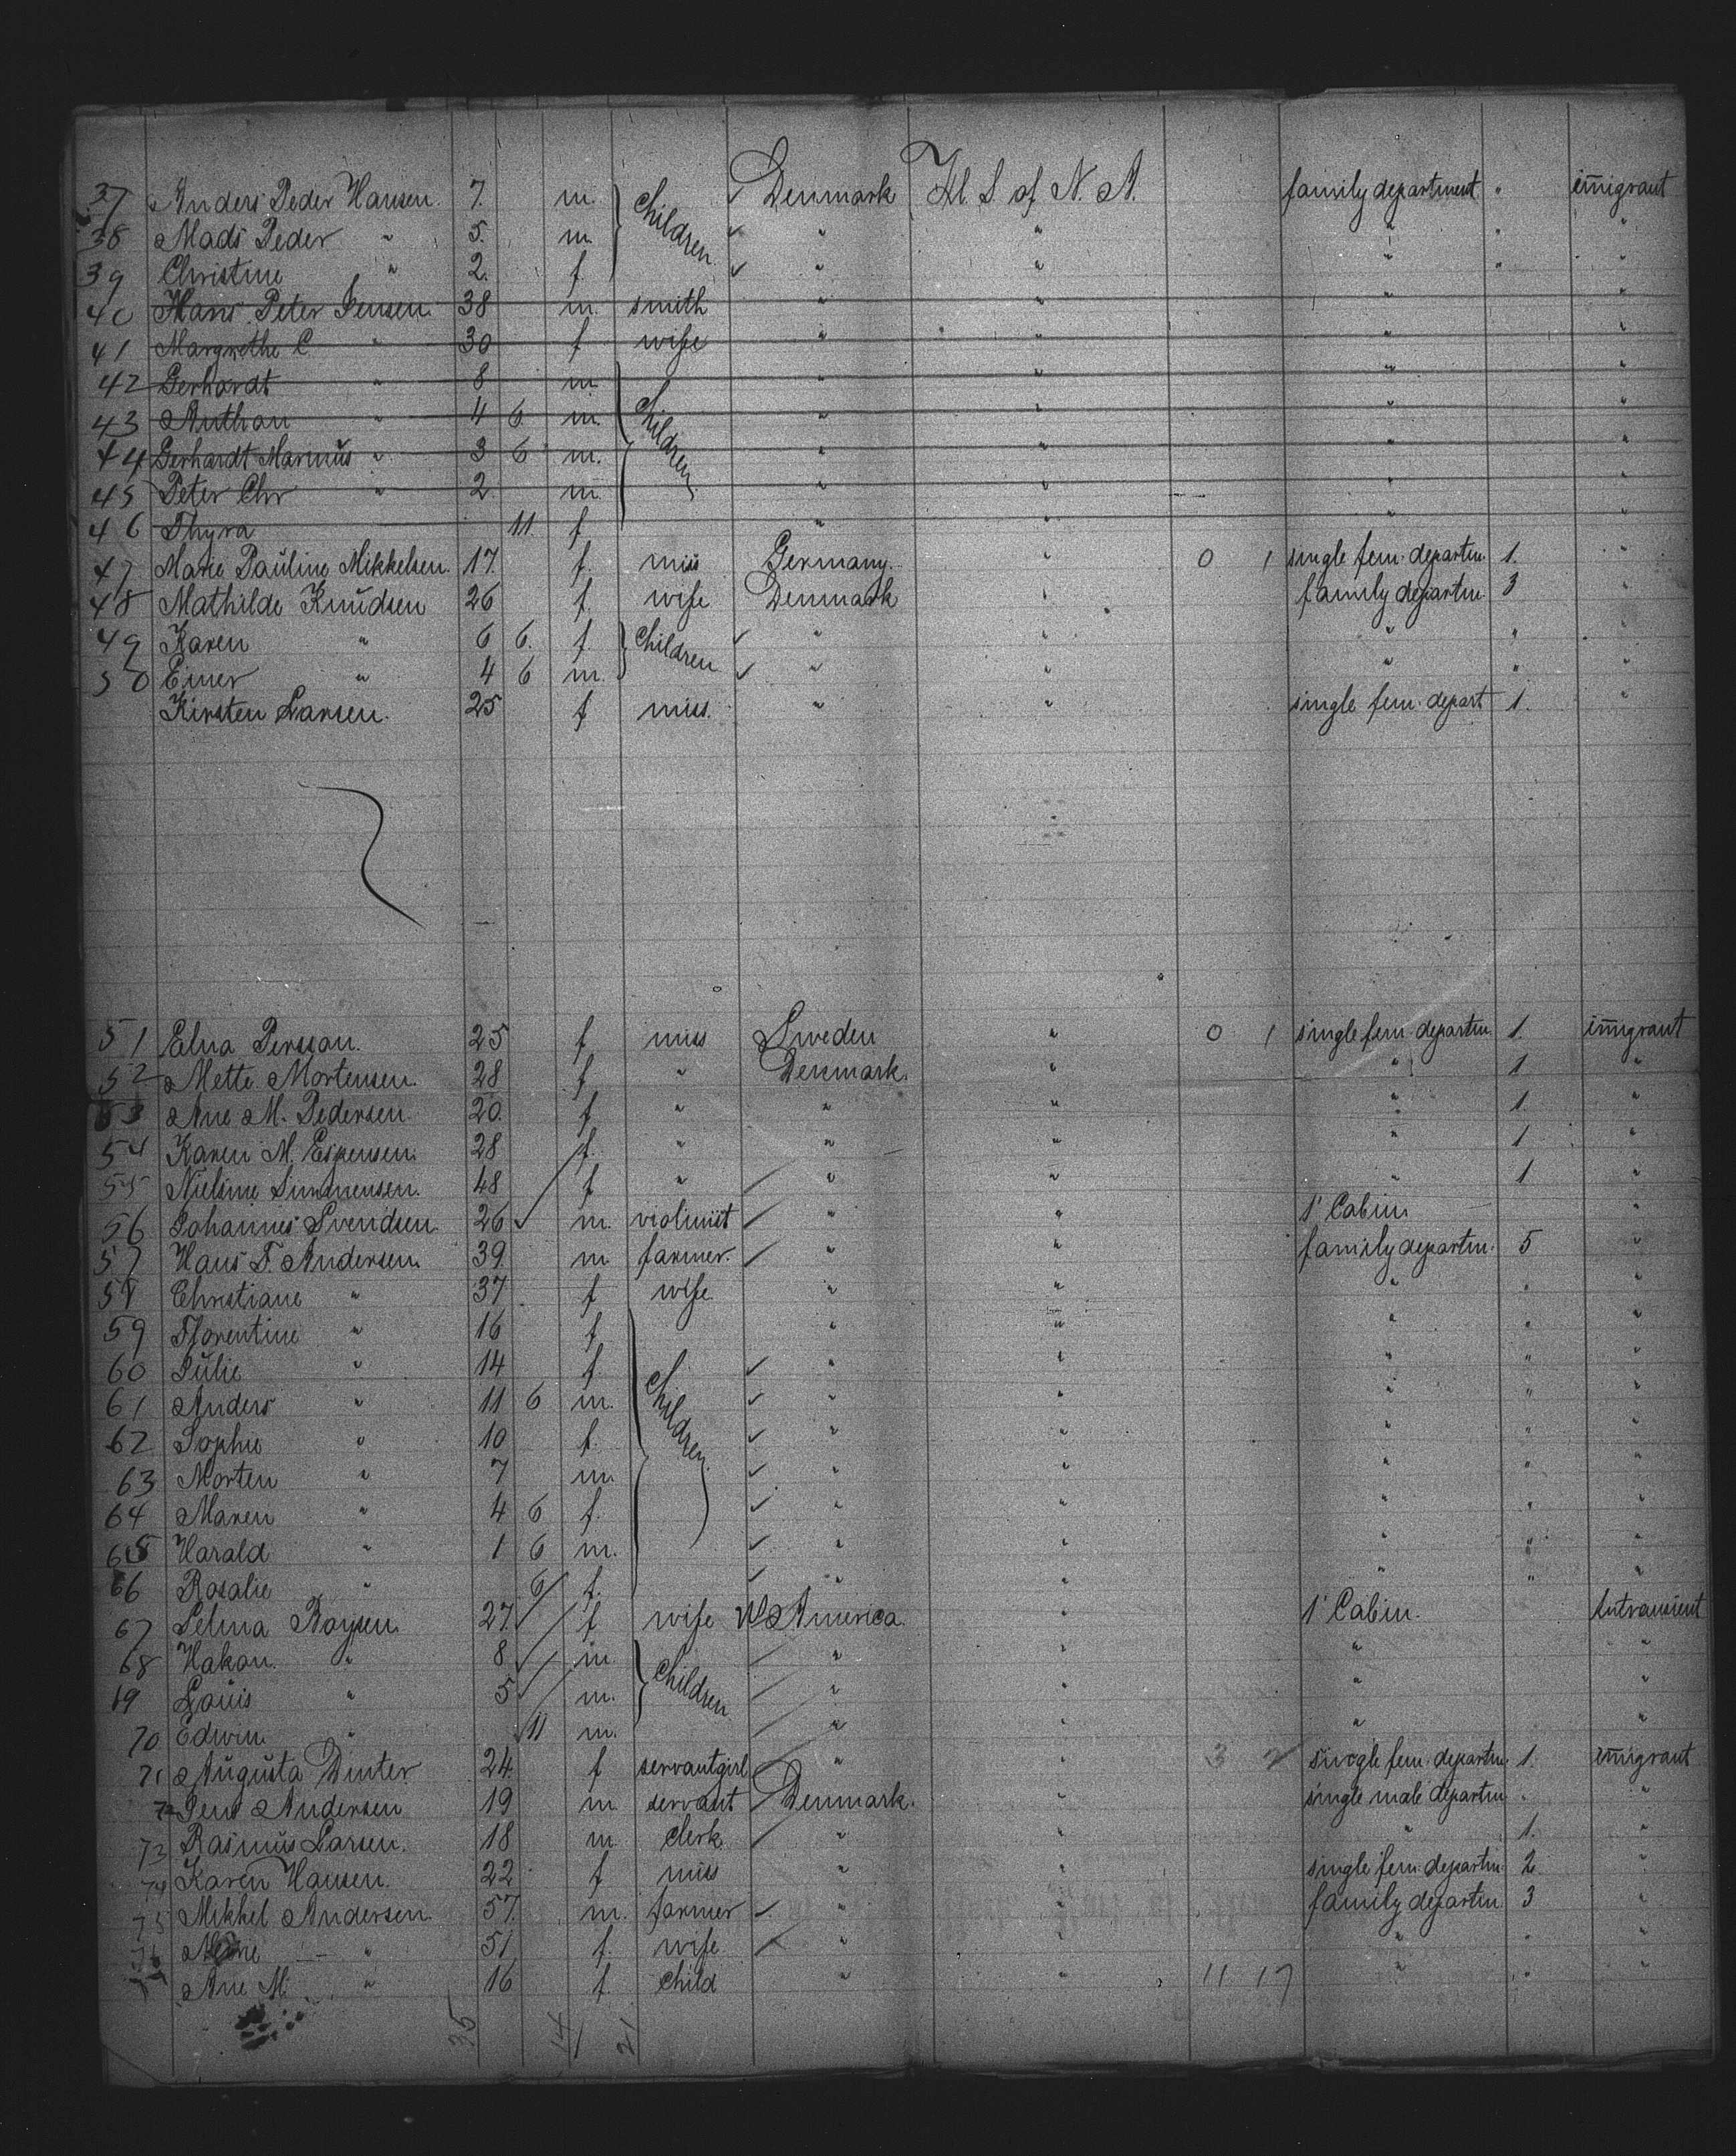 37 Anders Peder Hansen. 7. m. Children Denmark U. S. of N. A. family department " im̅igrant
38 Mads Peder " 5. m. " " " " "
39 Christine " 2. f. " " " " "
40 Hans Peter Jensen. 38 m. smith " " " "
41 Margrethe C. " 30 f wife " " " "
42 Gerhardt " 8 m. Children " " " "
43 Anthon " 4 6 m. " " " "
44 Gerhardt Marinus " 3 6 m. " " " "
45 Peter Chr " 2 m. " " " "
46 Thyra 11. f " " " "
47 Marie Pauline Mikkelsen. 17. f. miss Germany. " 0 1 single fem. departm. 1. "
48 Mathilde Knudsen 26 f. wife Denmark " family departm. 3 "
49 Karen " 6 6. f. Children " " " " "
50 Einer " 4 6 m. " " " " "
Kirsten Larsen. 25 f miss. " " single fem. depart 1. "
51 Elna Persson. 25 f miss Sweden " 0 1 single fem. departm. 1. im̅igrant
52 Mette Mortensen. 28 f " Denmark. " 1 "
53 Ane M. Pedersen. 20. f " " " " 1. "
54 Karen M. Espensen. 28 f. " " " " 1 "
55 Nielsine Simmensen. 48 f " " " " 1 "
56 Johannes Svendsen. 26 m. violinist " " 1' Cabin. "
57 Hans F. Andersen. 39. m farmer. " " family departm. 5 "
58 Christiane " 37 f wife " " " " "
59 Florentine " 16 f Children. " " " " "
60 Julie " 14 f " " " " "
61 Anders " 11 6 m. " " " " "
62 Sophie " 10 f. " " " " "
63 Morten " 7 m. " " " " "
64 Maren " 4 6 f. " " " " "
65 Harald " 1 6 m. " " " " "
66 Rosalie " 6 f. " " " " "
67 Selma Boysen. 27. f wife N America. " 1' Cabin. Intransient
68 Hakon. " 8 m. Children " " " "
69 Louis " 5 m. " " " "
70 Edwin. " 11 m. " " " "
71 Augusta Dinter 24 f servantgirl " " 3 single fem. departm. 1. im̅igrant
72 Jens Andersen 19 m servant Denmark. " single male departm. "
73 Rasmus Larsen. 18 m clerk " " " 1. "
74 Karen Hansen. 22 f miss " " single fem. departm. 2 "
75 Mikkel Andersen. 57. m. farmer " " family departm. 3 "
76 " 51 f. wife " " " " "
Ane M. " 16 f. child " " 11 17 " " "
35 14 21